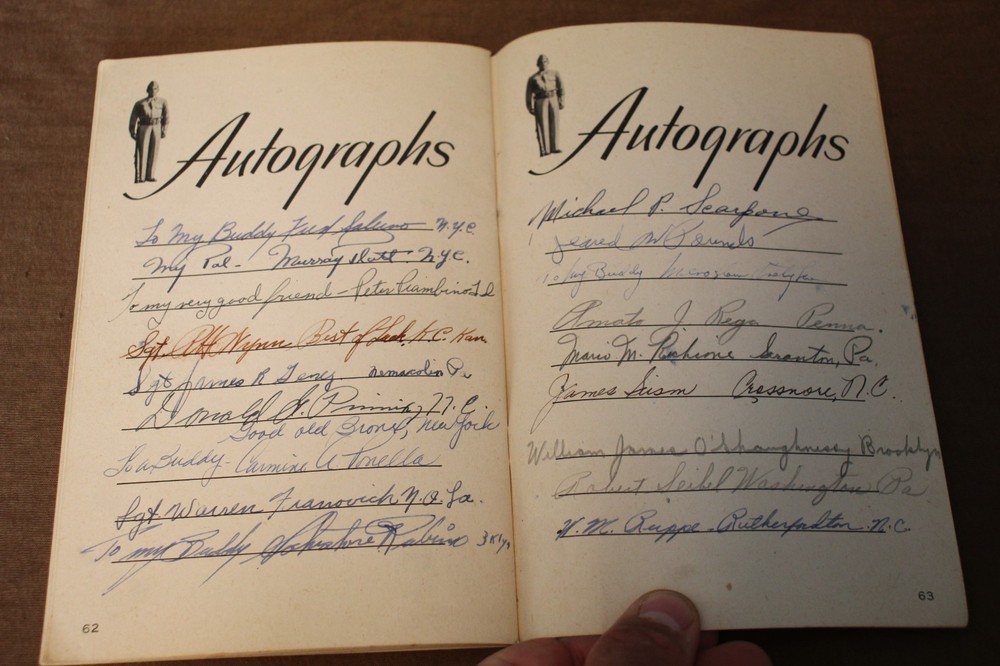 Autographs
To My Buddy Fred Salerno N.Y.C.
My Pal - Murray N.Y.C.
To my very good friend - Peter Piambino
Sgt. Wynn Best of Luck, K.C. Kan
Sgt James R Nemacolin Pa
Donald N.C.
Good old Bronx, New York
To a Buddy - Carmine A Tonella
Sgt. Warren Franovich N.O. La.
To my Buddy Salvatore Rubino Bklyn
62
Autographs
Michael P. Scarpone
To My Buddy
Amato J. Rega Penna.
Mario M. Scranton, Pa.
James Sism Crossnore, N.C.
William James O'Shaughnessy Brooklyn
Robert Seibel Washington Pa
W. M. Ruppe - Rutherfordton - N.C.
63